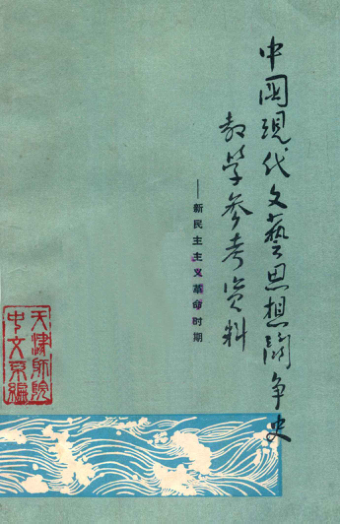 中國現代文藝思想鬭争史
教学参考资料
——新民主主义革命时期
天津师院
中文系编